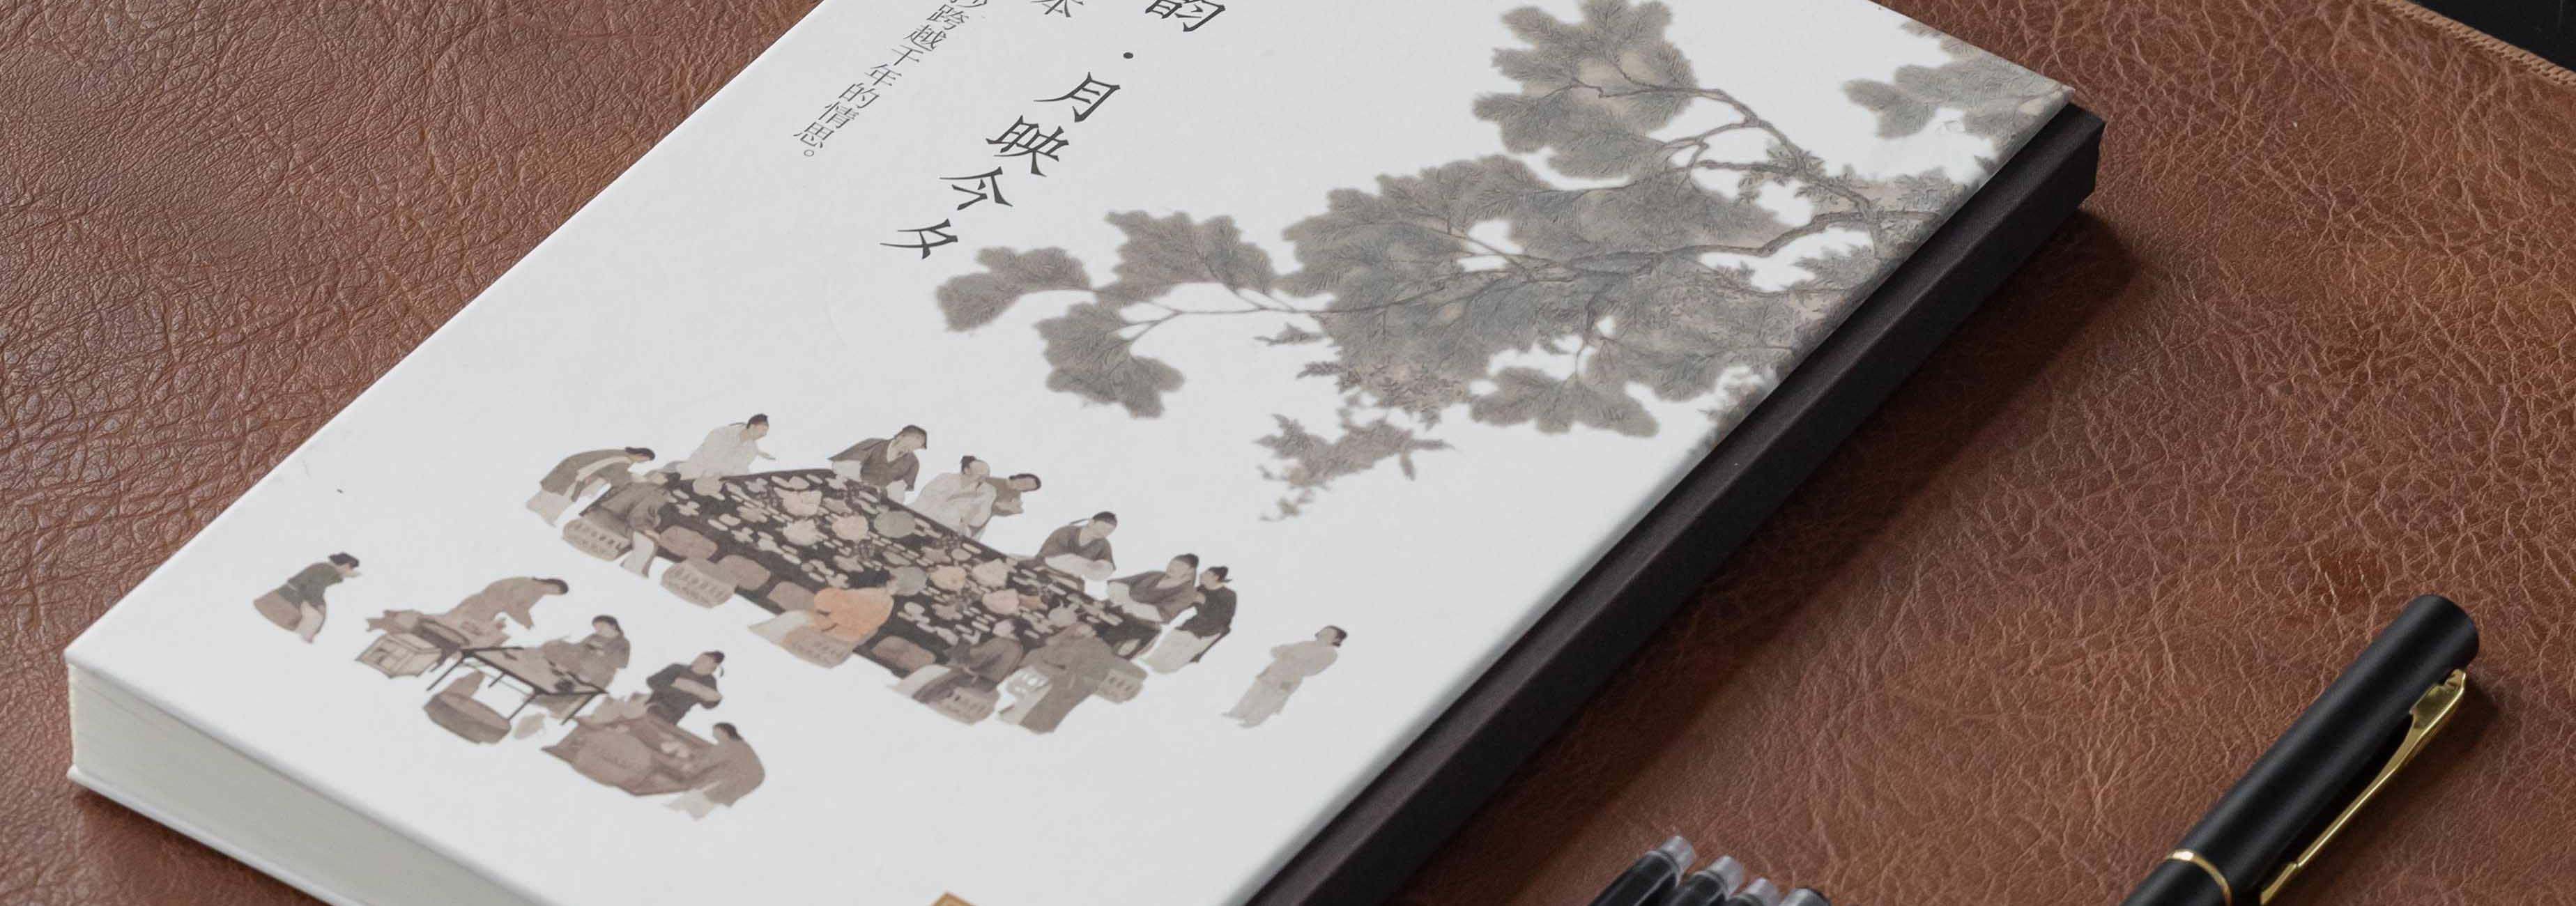 韵·月映今夕
本
跨越千年的情思。